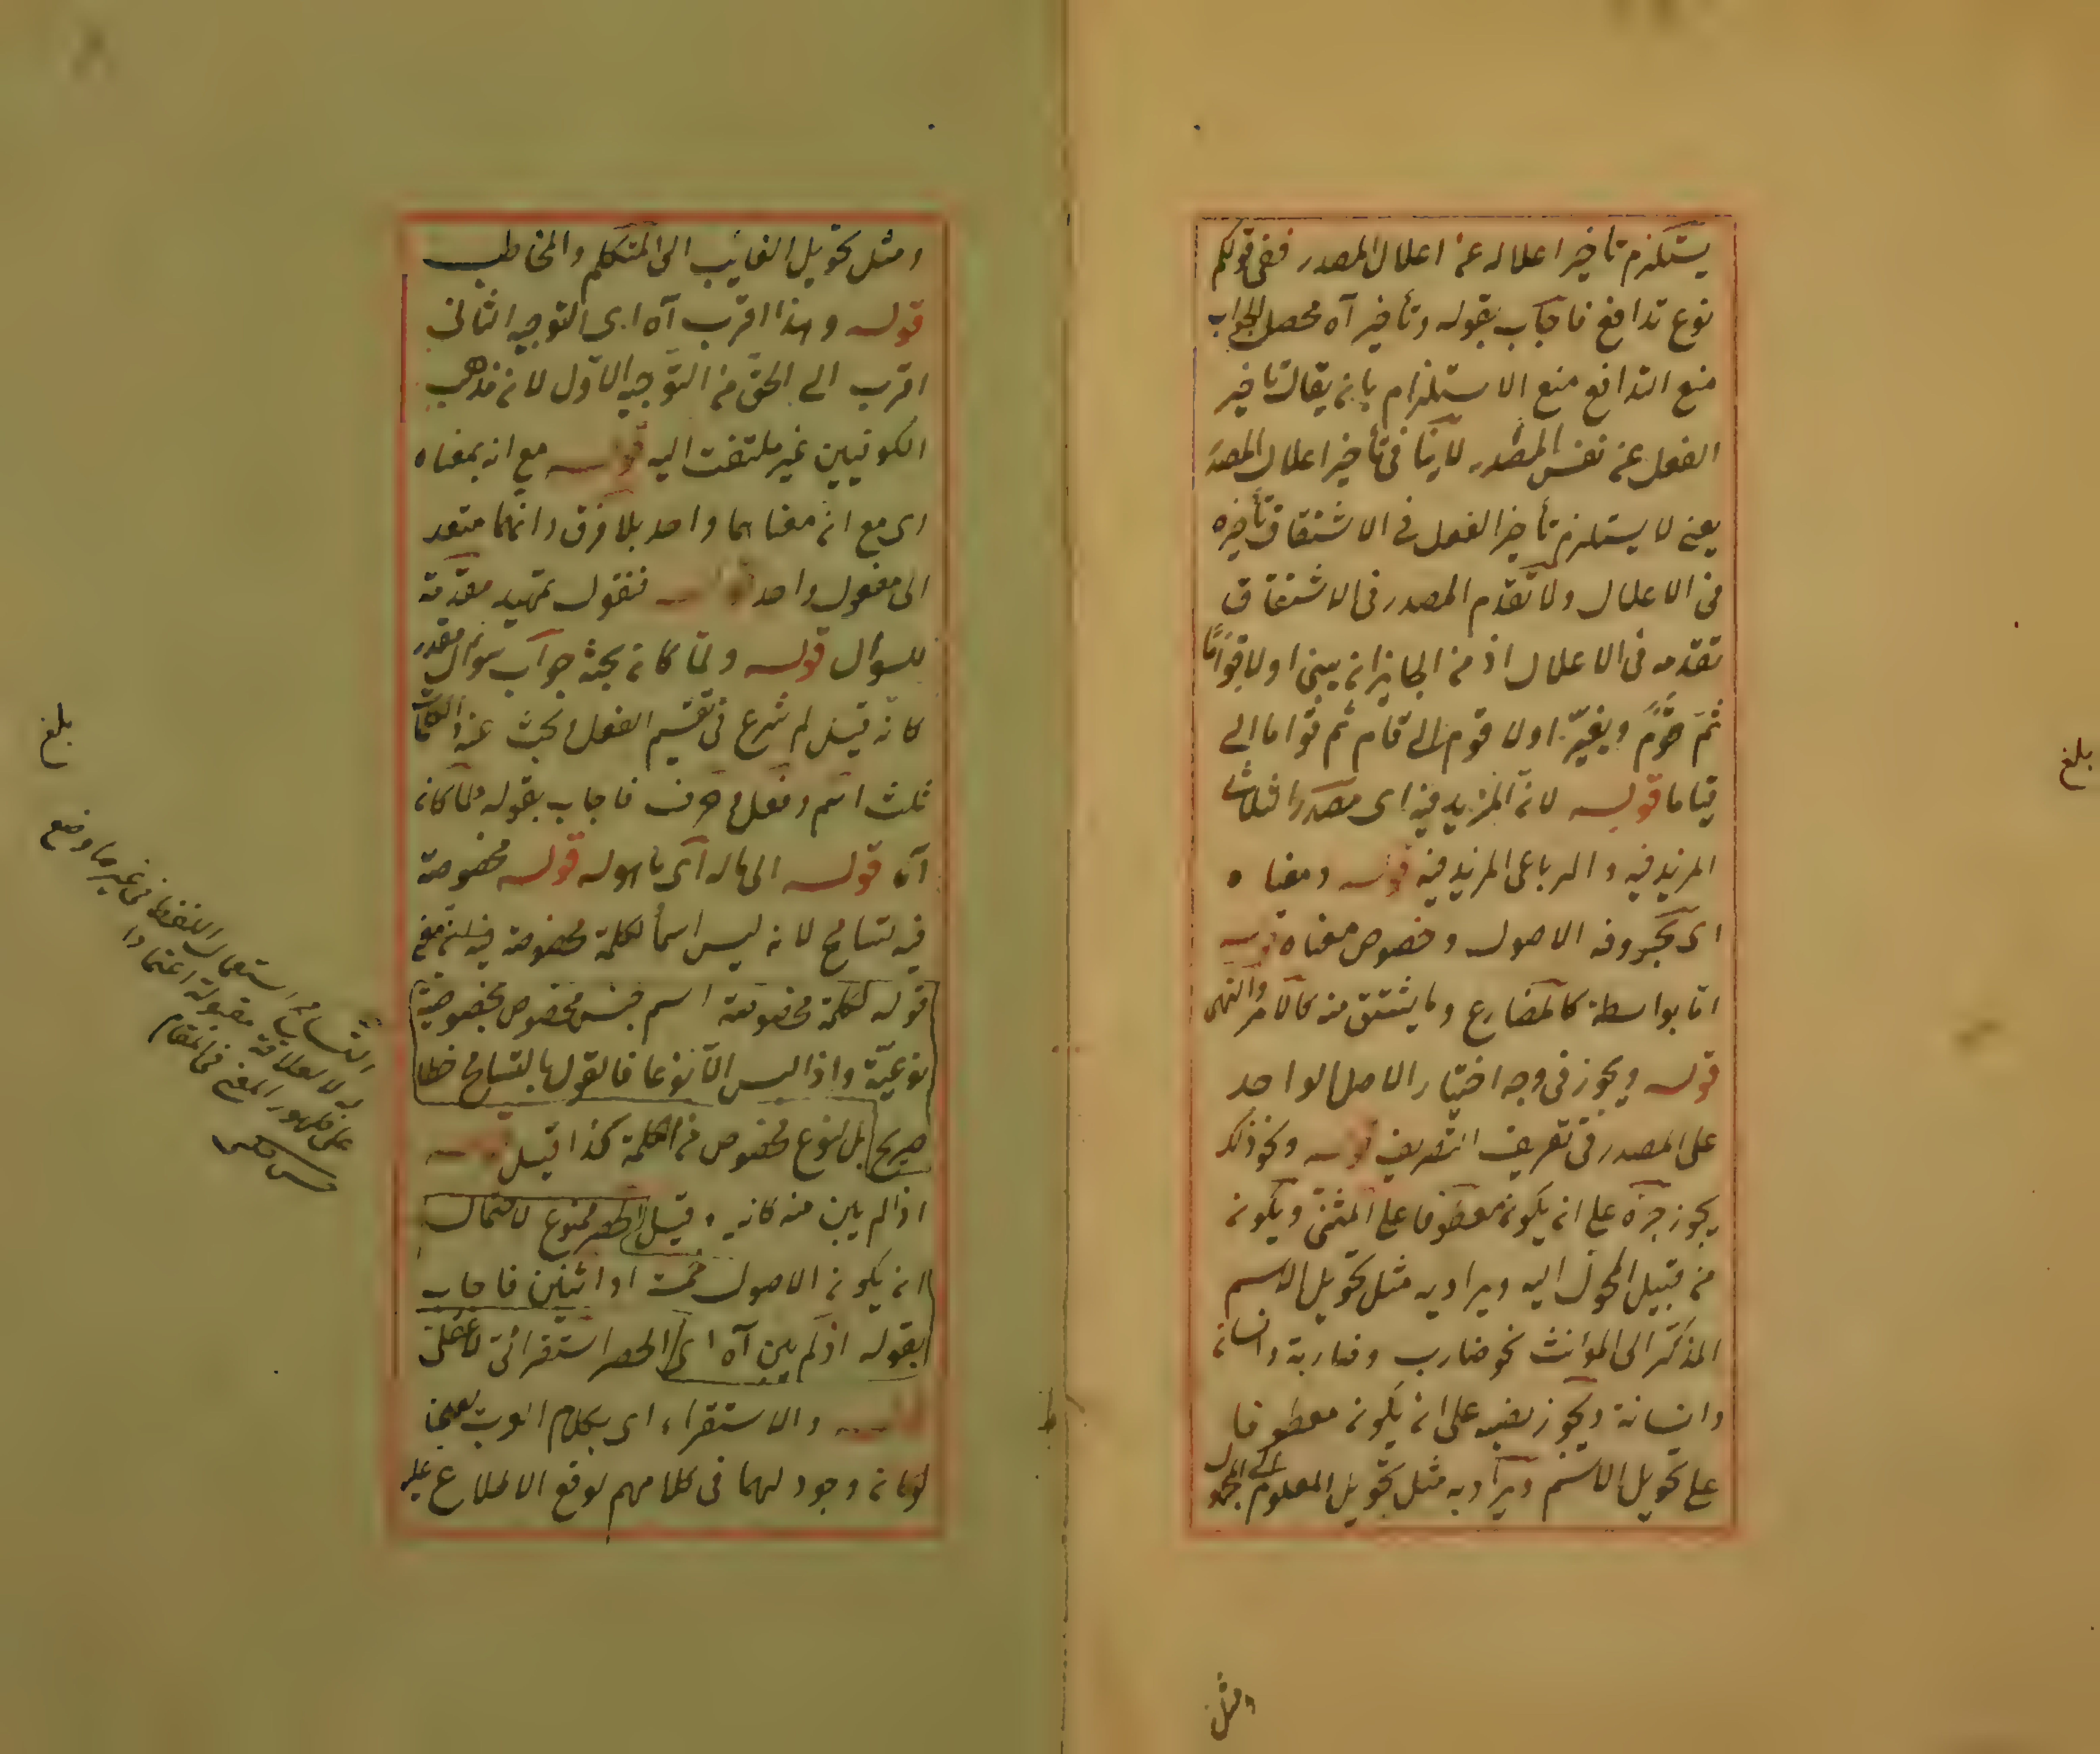 يستلزم تأخير اعلاله عن اعلال المصدر ففى قولكم
نوع تدافع فاجاب بقوله وتأخير آه محصل الجواب
منع التدافع منع الاستلزام بانه يقال تأخير
الفعل عن نفس المصدر لا ينافى تأخير اعلال المصدر
يعنى لا يستلزم تأخير الفعل فى الاشتقاق تأخيره
فى الاعلال ولا تقدم المصدر فى الاشتقاق
تقدمه فى الاعلال اذ من الجايز ان يبنى اولا قواما
ثم قوم ويغير اولا قوم الى قام ثم قواما الى
قياما قوله لان المزيد فيه اى مصدر الثلاثى
المزيد فيه والرباعى المزيد فيه قوله ومعناه
اى بحروفه الاصول وخصوص معناه قوله
اما بواسطة كالمضارع وما يشتق منه كالامر والنهى
قوله ويجوز فى وجه اختيار الاصل الواحد
على المصدر فى تعريف التصريف قوله ونحو ذلك
يجوز جره على ان يكون معطوفا على المثنى ويكون
من قبيل المحول اليه ويراد به مثل تحويل الاسم
المذكر الى المؤنث نحو ضارب وضاربة وانسان
وانسانة ويجوز نصبه على ان يكون معطوفا
على تحويل الاسم ويراد به مثل تحويل المعلوم الى المجهول
ومثل
بلغ
ومثل تحويل الغايب الى المتكلم والمخاطب
قوله وهذا اقرب آه اى التوجيه الثانى
اقرب الى الحق من التوجيه الاول لان مذهب
الكوفيين غير ملتفت اليه قوله مع انه بمعناه
اى مع ان معناهما واحد بلا فرق وانهما متعد
الى مفعول واحد قوله فنقول تمهيد مقدمة
للسوال قوله ولما كان بحثه جواب سوال مقدر
كانه قيل لم شرع فى تقسيم الفعل وبحث عنه الكلمات
ثلث اسم وفعل وحرف فاجاب بقوله ولما كان
آه قوله الى ماله اى ما هو له قوله مخصوصة
فيه تسامح لانه ليس اسما لكلمة مخصوصة
قوله لكلمة مخصوصة اسم جنس مخصوص بخصوصية
نوعية واذا ليس الا نوعا فالقول بالتسامح خطا
صريح بل لنوع مخصوص من الكلمة كذا قيل قوله
اذا لم يبن منه كانه وقيل الحصر ممنوع لاحتمال
ان يكون الاصول خمسة او اثنين فاجاب
بقوله اذ لم يبن آه اى الحصر استقرائى لا عقلى
قوله والاستقراء اى بكلام العرب يعنى
لو كان وجود لهما فى كلامهم لوقع الاطلاع عليه
بلغ
التسامح استعمال اللفظ فى غير ما وضع
له لا لعلاقة مقبولة اعتمادا
على ظهور المعنى فى المقام